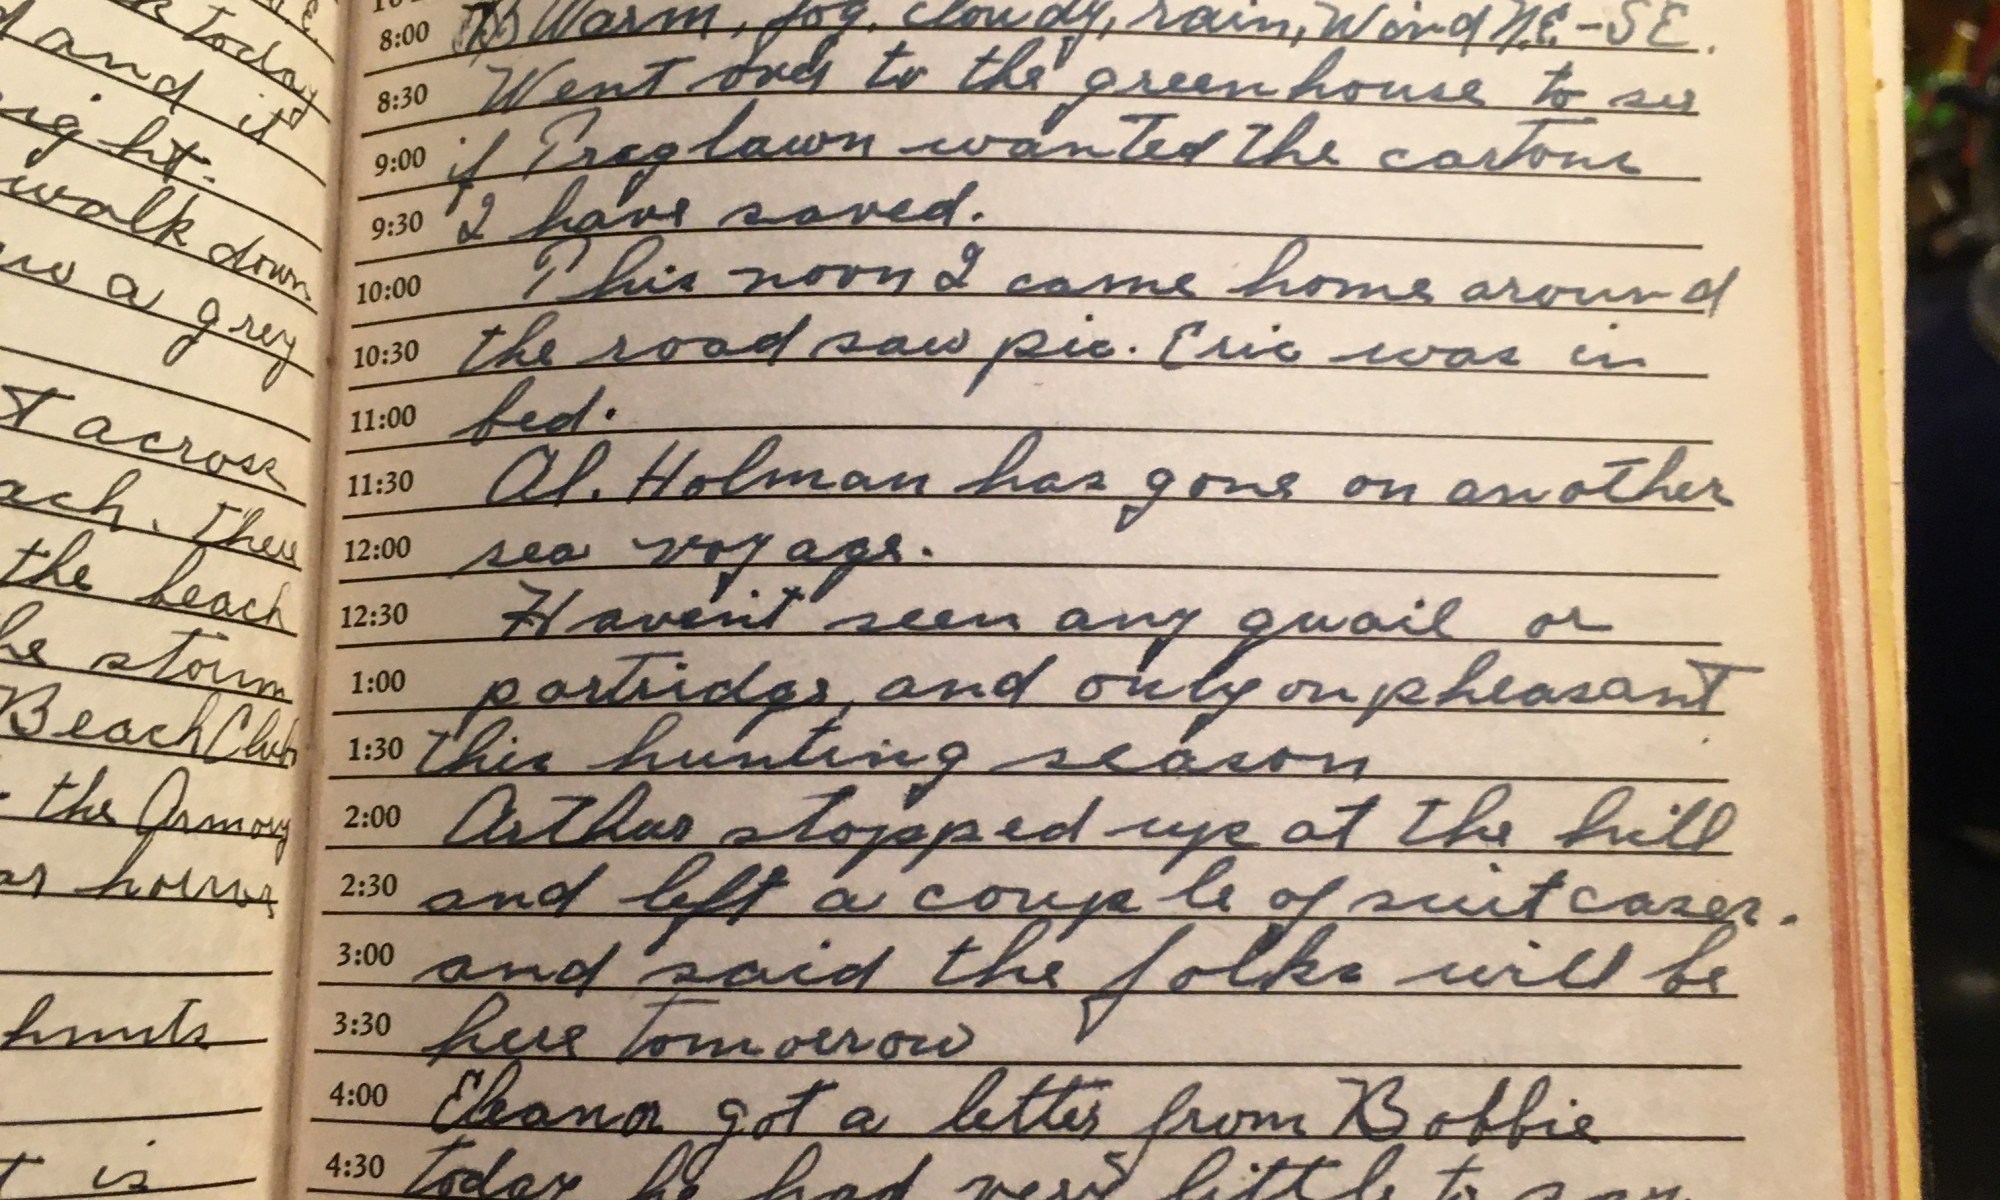 k today
d and it
ight.
walk down
a grey
T across
ach. There
the beach
he storm
Beach Club
the Armory
hunts
is
8:00 Warm, fog, cloudy, rain, Wind N.E.-SE.
8:30 Went over to the greenhouse to see
9:00 if Treglawn wanted the cartons
9:30 I have saved.
10:00 This noon I came home around
10:30 the road saw pic. Eric was in
11:00 bed.
11:30 Al. Holman has gone on another
12:00 sea voyage.
12:30 Haven't seen any quail or
1:00 partridge, and only on pheasant
1:30 this hunting season
2:00 Arthur stopped up at the hill
2:30 and left a couple of suitcases.
3:00 and said the folks will be
3:30 here tomorrow
4:00 Eleanor got a letter from Bobbie
4:30 today he had very little to say